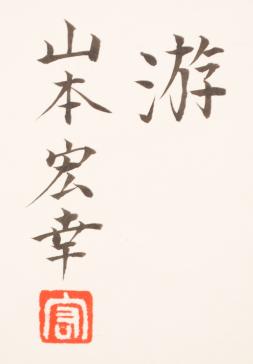 游
山本宏幸
宏